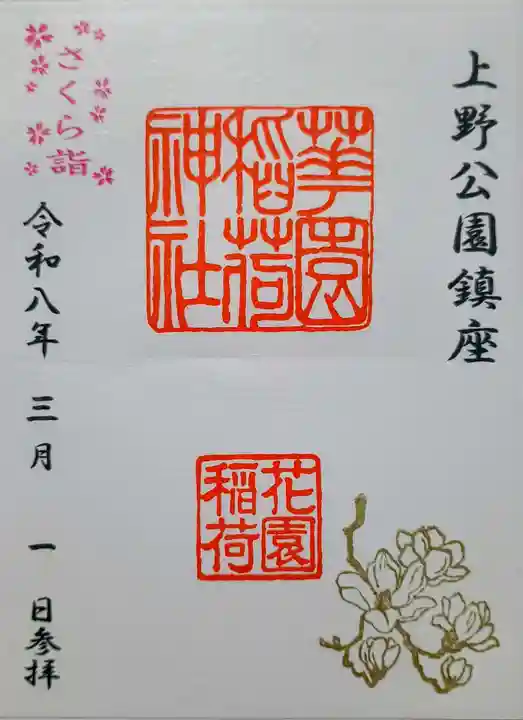 上野公園鎮座
華園
稲荷
神社
花園
稲荷
さくら詣
令和八年 三月 一 日参拝